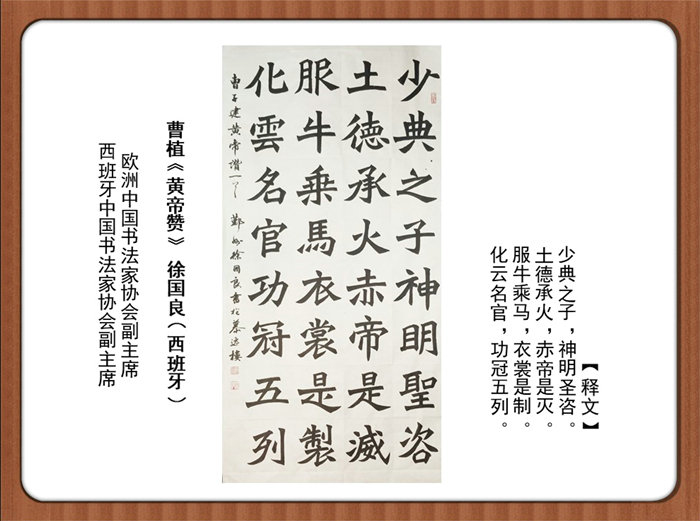 【释文】
少典之子，神明圣咨。
土德承火，赤帝是灭。
服牛乘马，衣裳是制。
化云名官，功冠五列。
少典之子神明聖咨
土德承火赤帝是滅
服牛乘馬衣裳是製
化雲名官功冠五列
曹子建黄帝讚一 徐國良書於
曹植《黄帝赞》 徐国良（西班牙）
欧洲中国书法家协会副主席
西班牙中国书法家协会副主席